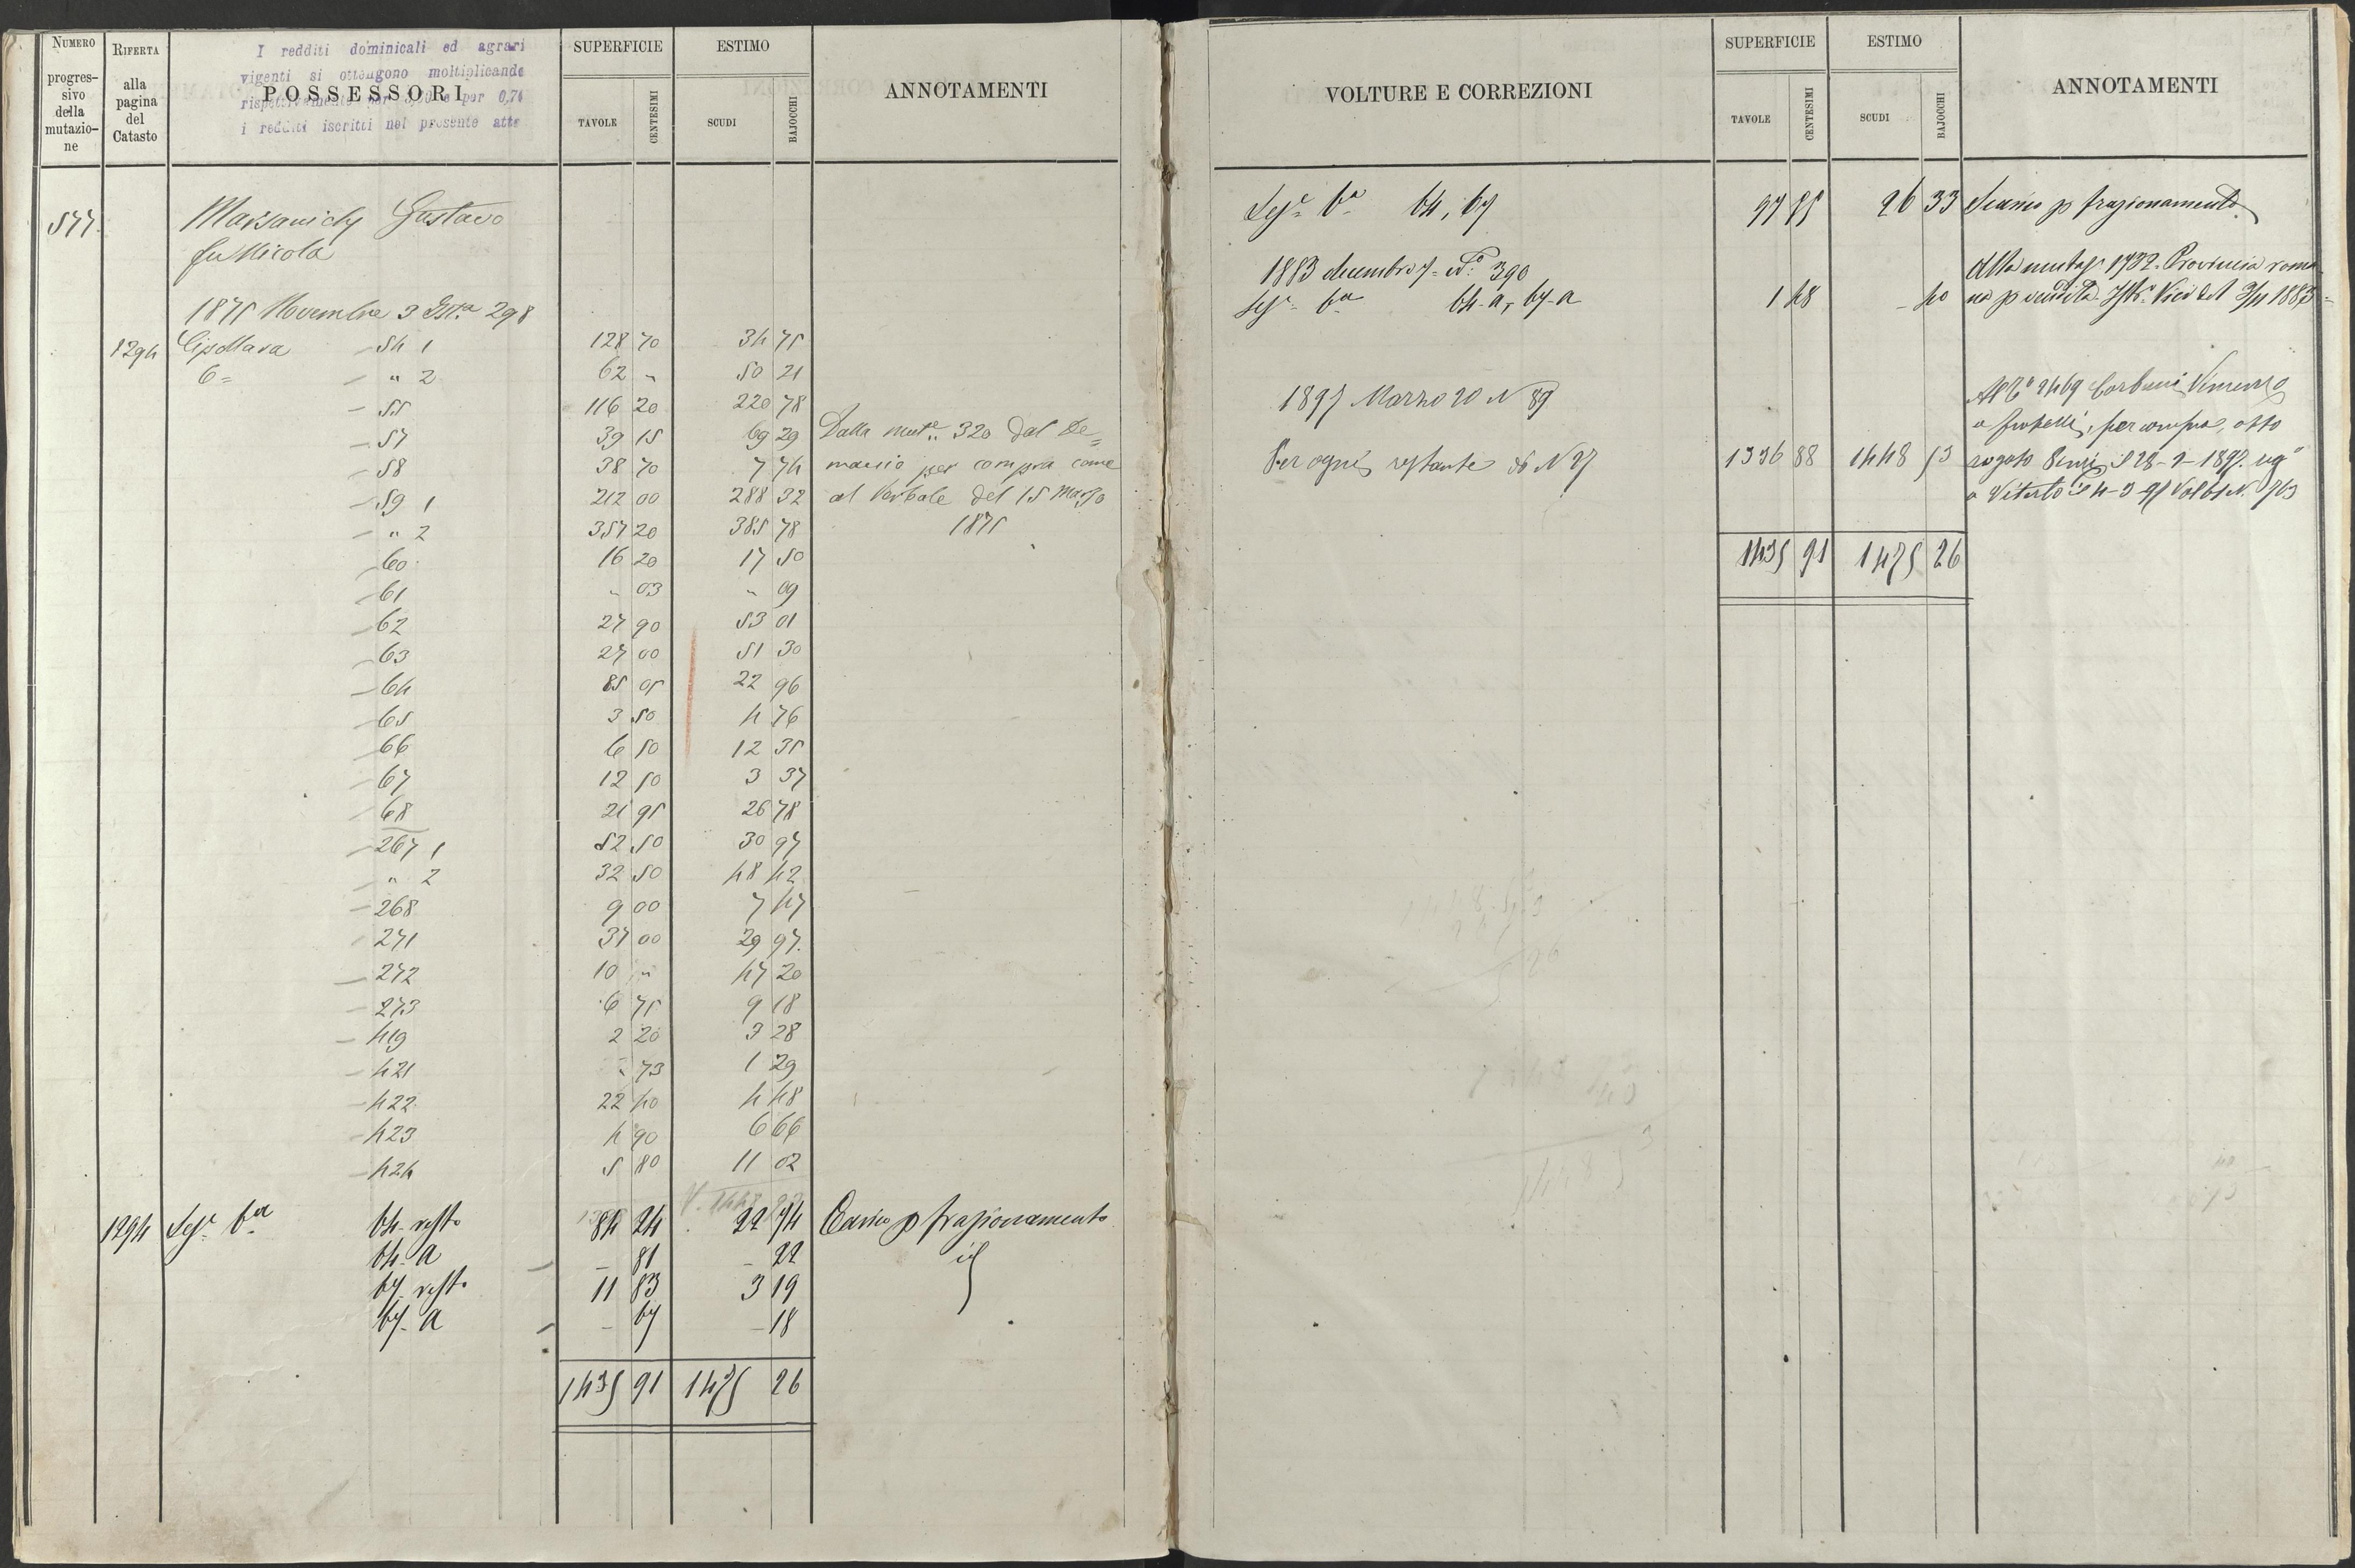 NUMERO
progres-
sivo
della
mutazio-
ne
RIFERTA
alla
pagina
del
Catasto
I redditi dominicali ed agrari
vigenti si ottengono moltiplicando
POSSESSORI
i redditi iscritti nel presente atto
SUPERFICIE
TAVOLE
CENTESIMI
ESTIMO
SCUDI
BAJOCCHI
ANNOTAMENTI
577. Marsanich Gustavo
fu Nicola
1875 Novembre 3 298
1294 Cipollara 54 1 128 70 34 75
6= " 2 62 " 50 21
55 116 20 220 78
57 39 15 69 29 Dalla mut.e 320 dal De=
58 38 70 7 74 manio per compra come
59 1 212 00 288 32 al Verbale del 15 Marzo
" 2 357 20 385 78 1875
60 16 20 17 50
61 " 03 " 09
62 27 90 53 01
63 27 00 51 30
64 85 05 22 96
65 3 50 4 76
66 6 50 12 35
67 12 50 3 37
68 21 95 26 78
267 1 52 50 30 97
" 2 32 50 48 42
268 9 00 7 47
271 37 00 29 97.
272 10 " 47 20
273 6 75 9 18
419 2 20 3 28
421 " 73 1 29
422 22 40 4 48
423 4 90 6 66
424 5 80 11 02
1294 Sez.e 6.a 64 resto 84 24 22 74 Carico p frazionamento
64-a – 81 – 22 id
67 resto 11 83 3 19
67-a – 67 – 18
1435 91 1475 26
VOLTURE E CORREZIONI
SUPERFICIE
TAVOLE
CENTESIMI
ESTIMO
SCUDI
BAJOCCHI
ANNOTAMENTI
Sez.e 6.a 64, 67 97 55 26 33 Scarico p frazionamento
1883 decembre 7 = N.o 390
Alla mutaz. 1732. Provincia roma
Sez.e 6.a 64-a, 67-a 1 48 – 40 na p vendita 1883
1897 Marzo 20 N 89
2469 Corbucci Vincenzo
e fratelli, per compra, atto
Per ogni restante 1336 88 1448 53 rogato 28-2-1897. reg.o
a Viterbo
1435 91 1475 26